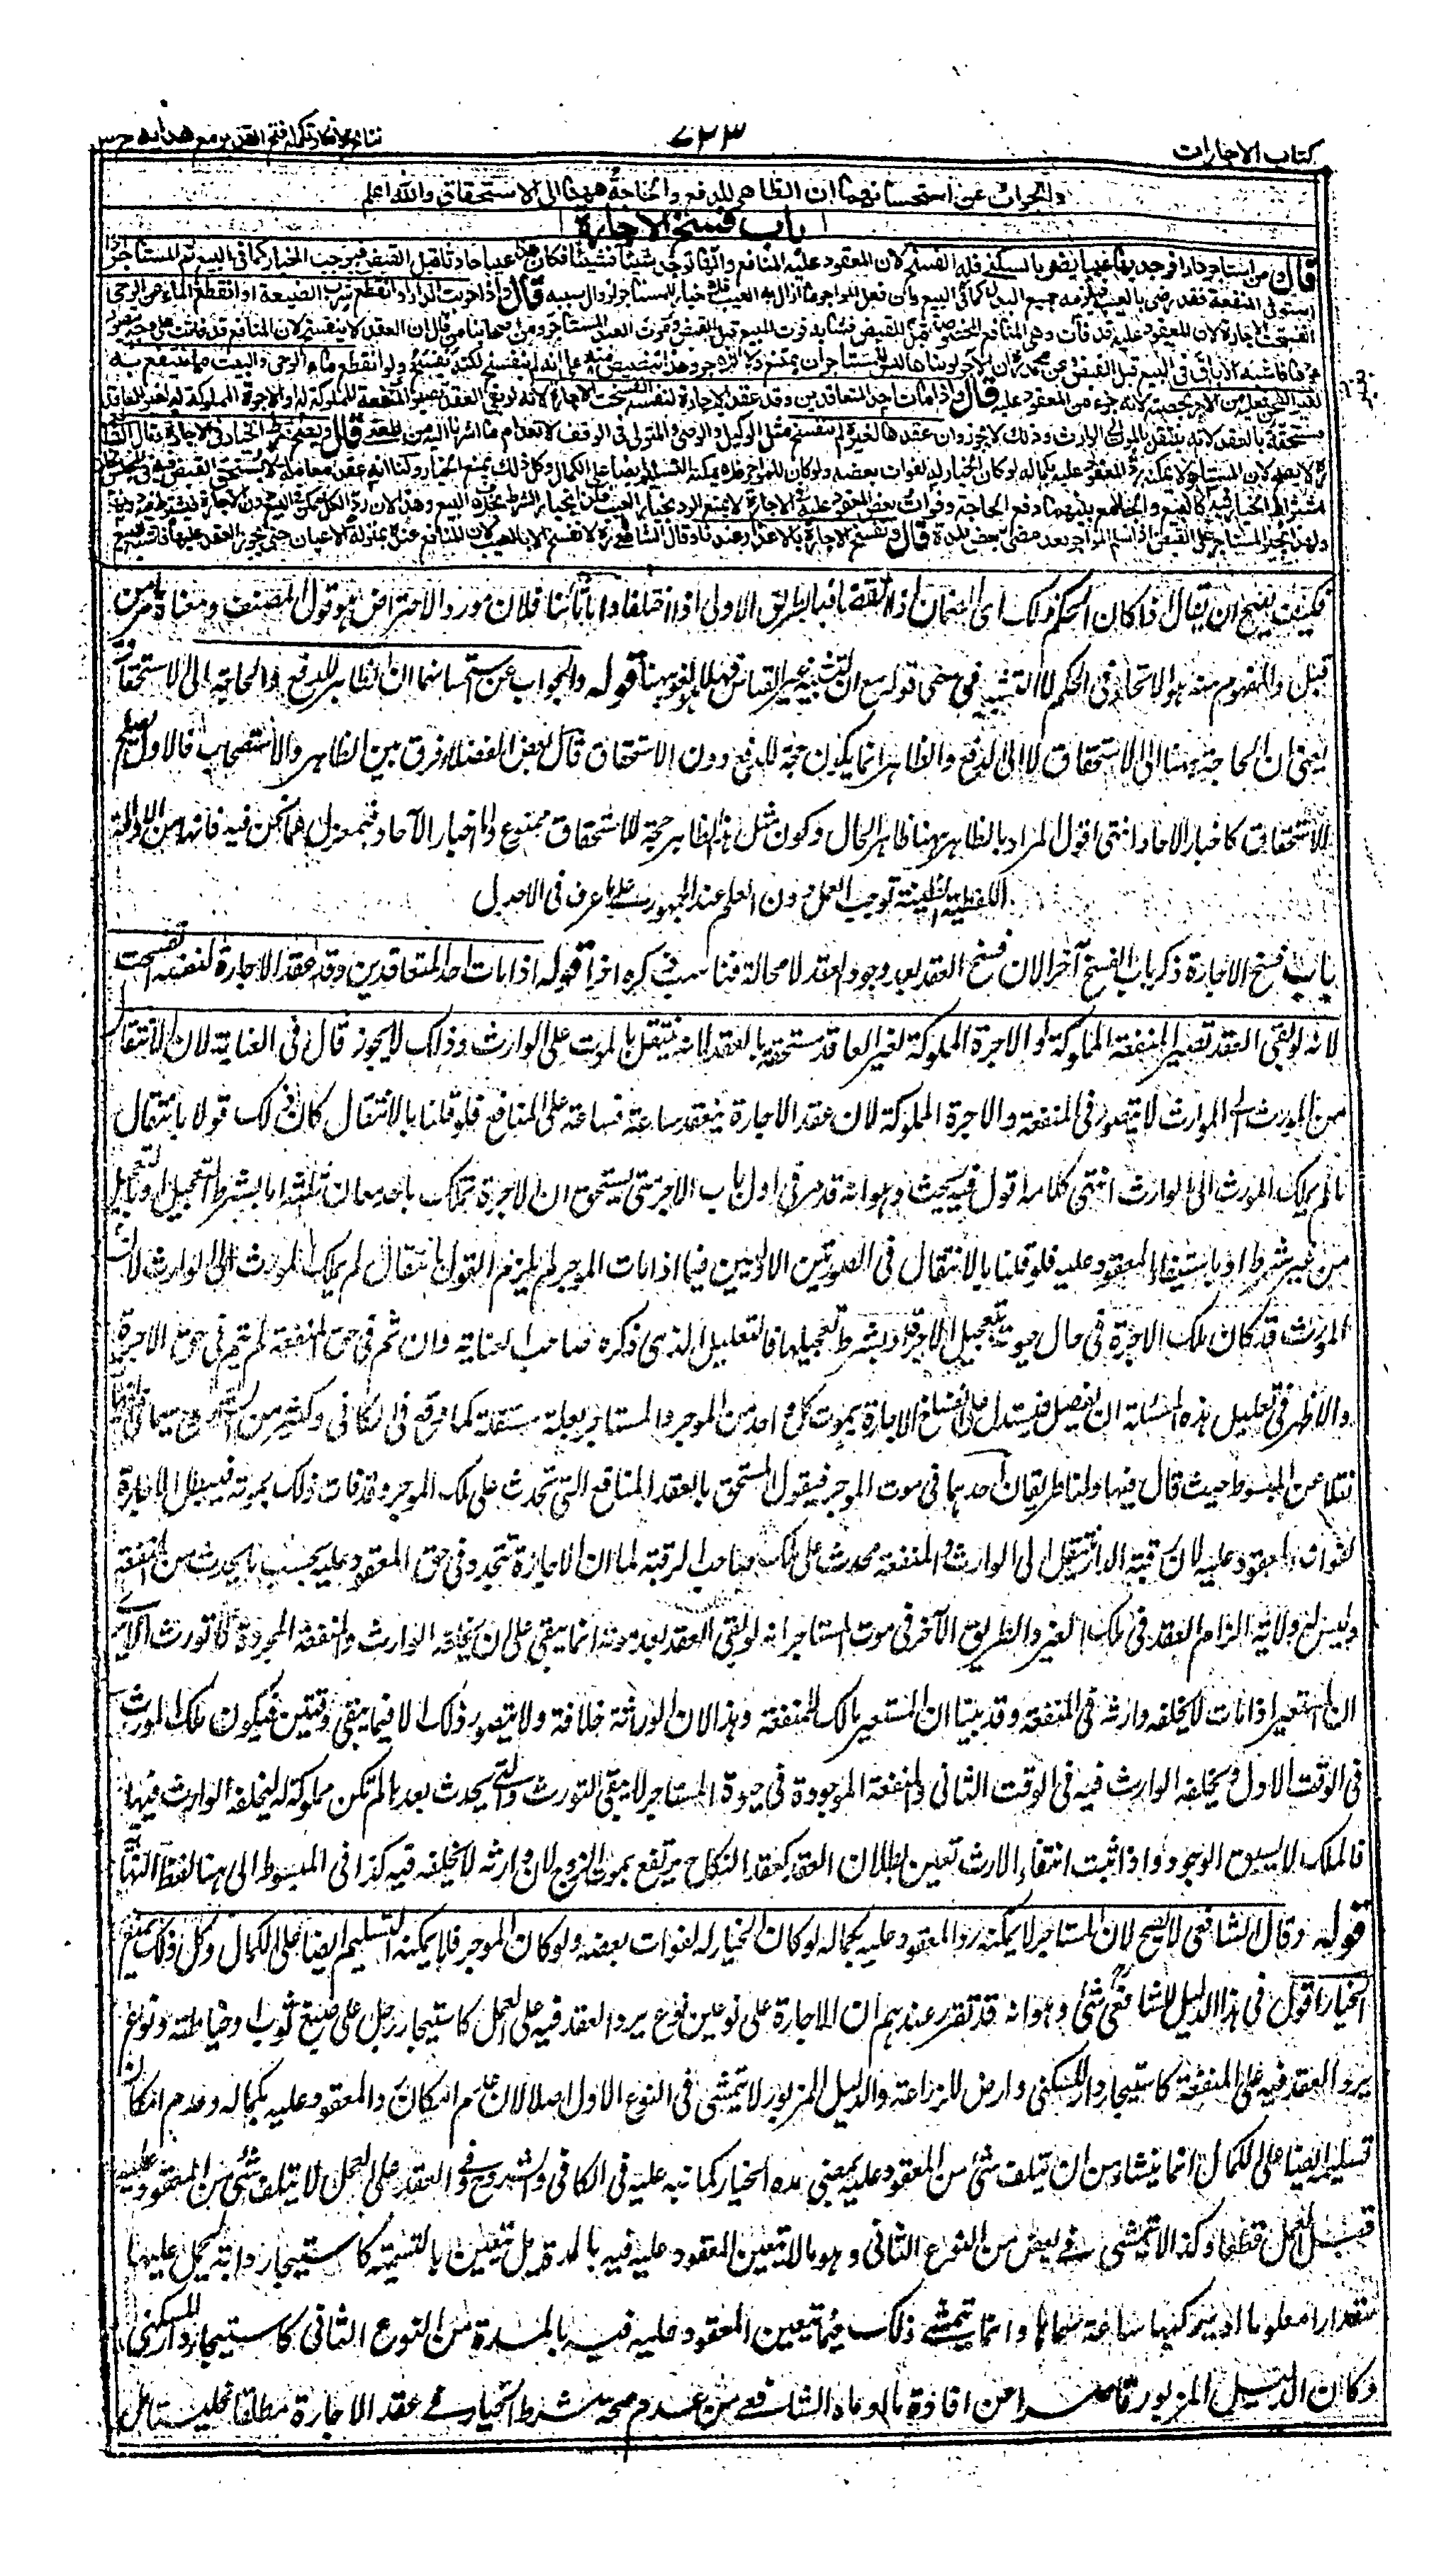 كتاب الاجارات
٧٢٣
نتائج الافكار تكملة فتح القدير مع هداية ج ٣
والجواب عن استحسانهما ان الظاهر للدفع والحاجة ههنا الى الاستحقاق والله اعلم
باب فسخ الاجارة
قال ومن استاجر دارا فوجد بها عيبا يضر بالسكنى فله الفسخ لان المعقود عليه المنافع وانها توجد شيئا فشيئا فكان هذا عيبا حادثا قبل القبض فيوجب الخيار كما في البيع ثم المستاجر اذا
استوفى المنفعة فقد رضى بالعيب فيلزمه جميع البدل كما في البيع وان فعل المواجر ما ازال به العيب فلا خيار للمستاجر لزوال سببه قال واذا خربت الدار او انقطع شرب الضيعة او انقطع الماء عن الرحى
انفسخت الاجارة لان المعقود عليه قد فات وهى المنافع المخصوصة قبل القبض فشابه فوت المبيع قبل القبض وموت العبد المستاجر ومن اصحابنا من قال ان العقد لا ينفسخ لان المنافع قد فاتت على وجه يتصور
عودها فاشبه الاباق في البيع قبل القبض وعن محمد ان الآجر لو بناها ليس للمستاجر ان يمتنع ولا للآجر وهذا تنصيص منه على انه لم ينفسخ لكنه يفسخ ولو انقطع ماء الرحى والبيت مما ينتفع به
لغير الطحن فعليه من الاجر بحصته لانه جزء من المعقود عليه قال واذا مات احد المتعاقدين وقد عقد الاجارة لنفسه انفسخت الاجارة لانه لو بقى العقد تصير المنفعة المملوكة له او الاجرة المملوكة له لغير العاقد
مستحقة بالعقد لانه ينتقل بالموت الى الوارث وذلك لا يجوز وان عقدها لغيره لم تنفسخ مثل الوكيل والوصى والمتولى في الوقف لانعدام ما اشرنا اليه من المعنى قال ويصح شرط الخيار في الاجارة وقال الشافعى
رح لا يصح لان المستاجر لا يمكنه رد المعقود عليه بكماله لو كان الخيار له لفوات بعضه ولو كان للمواجر فلا يمكنه التسليم ايضا على الكمال وكل ذلك يمنع الخيار ولنا انه عقد معاملة لا يستحق القبض فيه في المجلس فجاز
اشتراط الخيار فيه كالبيع والجامع بينهما دفع الحاجة وفوات بعض المعقود عليه في الاجارة لا يمنع الرد بخيار العيب فكذا بخيار الشرط بخلاف البيع وهذا لان رد الكل ممكن في البيع دون الاجارة فيشترط فيه دونها
ولهذا يجبر المستاجر على القبض اذا سلم المواجر بعد مضى بعض المدة قال وتفسخ الاجارة بالاعذار عندنا وقال الشافعى رح لا تفسخ الا بالعيب لان المنافع عنده بمنزلة الاعيان حتى يجوز العقد عليها فاشبه البيع
فكيف يصح ان يقال اذا كان الحكم ذلك اى الضمان اذا اتفقا فبالطريق الاولى اذا اختلفا واما ثانيا فلان مورد الاعتراض هو قول المصنف ومعناه ما مر من
قبل والمفهوم منه هو الاتحاد في الحكم لا التشبيه في معنى قوله مع ان التشبيه غير القياس فهلا لغوهنا قوله والجواب عن استحسانهما ان الظاهر للدفع والحاجة الى الاستحقاق
يعنى ان الحاجة ههنا الى الاستحقاق لا الى الدفع والظاهر انما يكون حجة للدفع دون الاستحقاق قال بعض الفضلاء فرق بين الظاهر والاستصحاب فالاول يصلح
للاستحقاق كاخبار الآحاد انتهى اقول المراد بالظاهر ههنا ظاهر الحال وكون مثل هذا الظاهر حجة للاستحقاق ممنوع واخبار الآحاد بمعزل عما نحن فيه فانها من الادلة
اللفظية الظنية توجب العمل دون العلم عند الجمهور على ما عرف في الاصول
باب فسخ الاجارة ذكر باب الفسخ آخرا لان فسخ العقد بعد وجود العقد لا محالة فناسب ذكره اخيرا قوله اذا مات احد المتعاقدين وقد عقد الاجارة لنفسه انفسخت
لانه لو بقى العقد تصير المنفعة المملوكة او الاجرة المملوكة لغير العاقد مستحقة بالعقد لانه ينتقل بالموت الى الوارث وذلك لا يجوز قال في العناية لان الانتقال
من المورث الى الوارث لا يتصور في المنفعة والاجرة المملوكة لان عقد الاجارة ينعقد ساعة فساعة على المنافع فلو قلنا بالانتقال كان ذلك قولا بانتقال
ما لم يملك المورث الى الوارث انتهى كلامه اقول فيه بحث وهو انه قد مر في اول باب الاجر متى يستحق ان الاجرة تملك باحد معان ثلثة اما بشرط التعجيل او بالتعجيل
من غير شرط او باستيفاء المعقود عليه فلو قلنا بالانتقال في الصورتين الاوليين فيما اذا مات الموجر لم يلزم القول بانتقال لم يملك المورث الى الوارث لان
المورث قد كان ملك الاجرة في حال حيوته بتعجيل الاجرة او بشرط تعجيلها فالتعليل الذى ذكره صاحب العناية وان تم في حق المنفعة لم يتم في حق الاجرة
والاظهر في تعليل هذه المسئلة ان يفصل فيستدل على انفساخ الاجارة بموت كل واحد من الموجر والمستاجر بعلة مستقلة كما وقع في الكافى وكثير من الشروح سيما في النهاية
نقلا عن المبسوط حيث قال فيها ولنا طريقان احدهما في موت الموجر فيقول المستحق بالعقد المنافع التى تحدث على ملك الموجر وقد فات ذلك بموته فيبطل الاجارة
لفوات المعقود عليه لان رقبة الدار تنتقل الى الوارث والمنفعة تحدث على ملك صاحب الرقبة لما ان الاجارة تتجدد في حق المعقود عليه بحسب ما يحدث من المنفعة
وليس له ولاية الزام العقد في ملك الغير والطريق الآخر في موت المستاجر انه لو بقى العقد بعد موته انما يبقى على ان يخلفه الوارث والمنفعة المجردة لا تورث الا يرى
ان المستعير اذا مات لا يخلفه وارثه في المنفعة وقد بينا ان المستعير مالك للمنفعة وهذا لان الوراثة خلافة ولا يتصور ذلك الا فيما يبقى وقتين فيكون ملك المورث
في الوقت الاول ويخلفه الوارث فيه في الوقت الثانى والمنفعة الموجودة في حيوة المستاجر لا يبقى لتورث والتى يحدث بعدها لم تكن مملوكة له ليخلفه الوارث فيها
فالملك لا يسبق الوجود واذا ثبت انتفاء الارث تعين بطلان العقد كعقد النكاح يرتفع بموت الزوج لان وارثه لا يخلفه فيه كذا في المبسوط الى هنا لفظ النهاية
قوله وقال الشافعى لا يصح لان المستاجر لا يمكنه رد المعقود عليه بكماله لو كان الخيار له لفوات بعضه ولو كان للموجر فلا يمكنه التسليم ايضا على الكمال وكل ذلك يمنع
الخيار اقول في هذا الدليل للشافعى شئ وهو انه قد تقرر عندهم ان الاجارة على نوعين نوع يرد العقد فيه على العمل كاستيجار رجل على صبغ ثوب او خياطته ونوع
يرد العقد فيه على المنفعة كاستيجار دار للسكنى وارض للزراعة والدليل المزبور لا يتمشى في النوع الاول اصلا لان عدم امكان رد المعقود عليه بكماله وعدم امكان
تسليمه ايضا على الكمال انما ينشاء من ان يتلف شئ من المعقود عليه بمضى مدة الخيار كما نبه عليه في الكافى والشروح وفي العقد على العمل لا يتلف شئ من المعقود عليه
قبل العمل قطعا وكذا لا يتمشى في بعض من النوع الثانى وهو ما لا يتعين المعقود عليه فيه بالمدة بل تتعين بالتسمية كاستيجار دابة ليحمل عليها
مقدارا معلوما او يركبها مسافة سماها وانما يتمشى ذلك فيما يتعين المعقود عليه فيه بالمدة من النوع الثانى كاستيجار دار للسكنى
وكان الدليل المزبور قاصرا عن افادة ما ادعاه الشافعى من عدم صحة شرط الخيار في عقد الاجارة مطلقا فليتامل